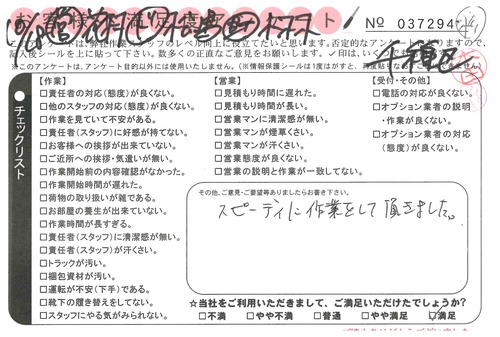 No 037294
このアンケートは、弊社作業スタッフのレベル向上に役立てたいと思います。否定的なアンケートもありますので、
記入後シールを上に貼って下さい。数多くの正直なご意見をお寄せ下さい。✓印は、いくつでも
※このアンケートは、アンケート目的以外には使用いたしません。(※情報保護シールは1度はがすと、再度貼りなおすことはできません)
チェックリスト
【作業】
□責任者の対応(態度)が良くない。
□他のスタッフの対応(態度)が良くない。
□作業を見ていて不安がある。
□責任者(スタッフ)に好感が持てない。
□お客様への挨拶が出来ていない。
□ご近所への挨拶・気遣いが無い。
□作業開始前の内容確認がなかった。
□作業開始時間が遅れた。
□荷物の取り扱いが雑である。
□お部屋の養生が出来ていない。
□作業時間が長すぎる。
□責任者(スタッフ)に清潔感が無い。
□責任者(スタッフ)が汗くさい。
□トラックが汚い。
□梱包資材が汚い。
□運転が不安(下手)である。
□靴下の履き替えをしてない。
□スタッフにやる気がみられない。
【営業】
□見積もり時間に遅れた。
□見積もり時間が長い。
□営業マンに清潔感が無い。
□営業マンが煙草くさい。
□営業マンが汗くさい。
□営業態度が良くない。
□営業の説明と作業が一致してない。
【受付・その他】
□電話の対応が良くない。
□オプション業者の説明
・作業が良くない。
□オプション業者の対応
(態度)が良くない。
その他、ご意見・ご要望等ありましたらお書き下さい。
スピーディに作業をして頂きました。
☆当社をご利用いただきまして、ご満足いただけたでしょうか?
□不満 □やや不満 □普通 □やや満足 ☑満足